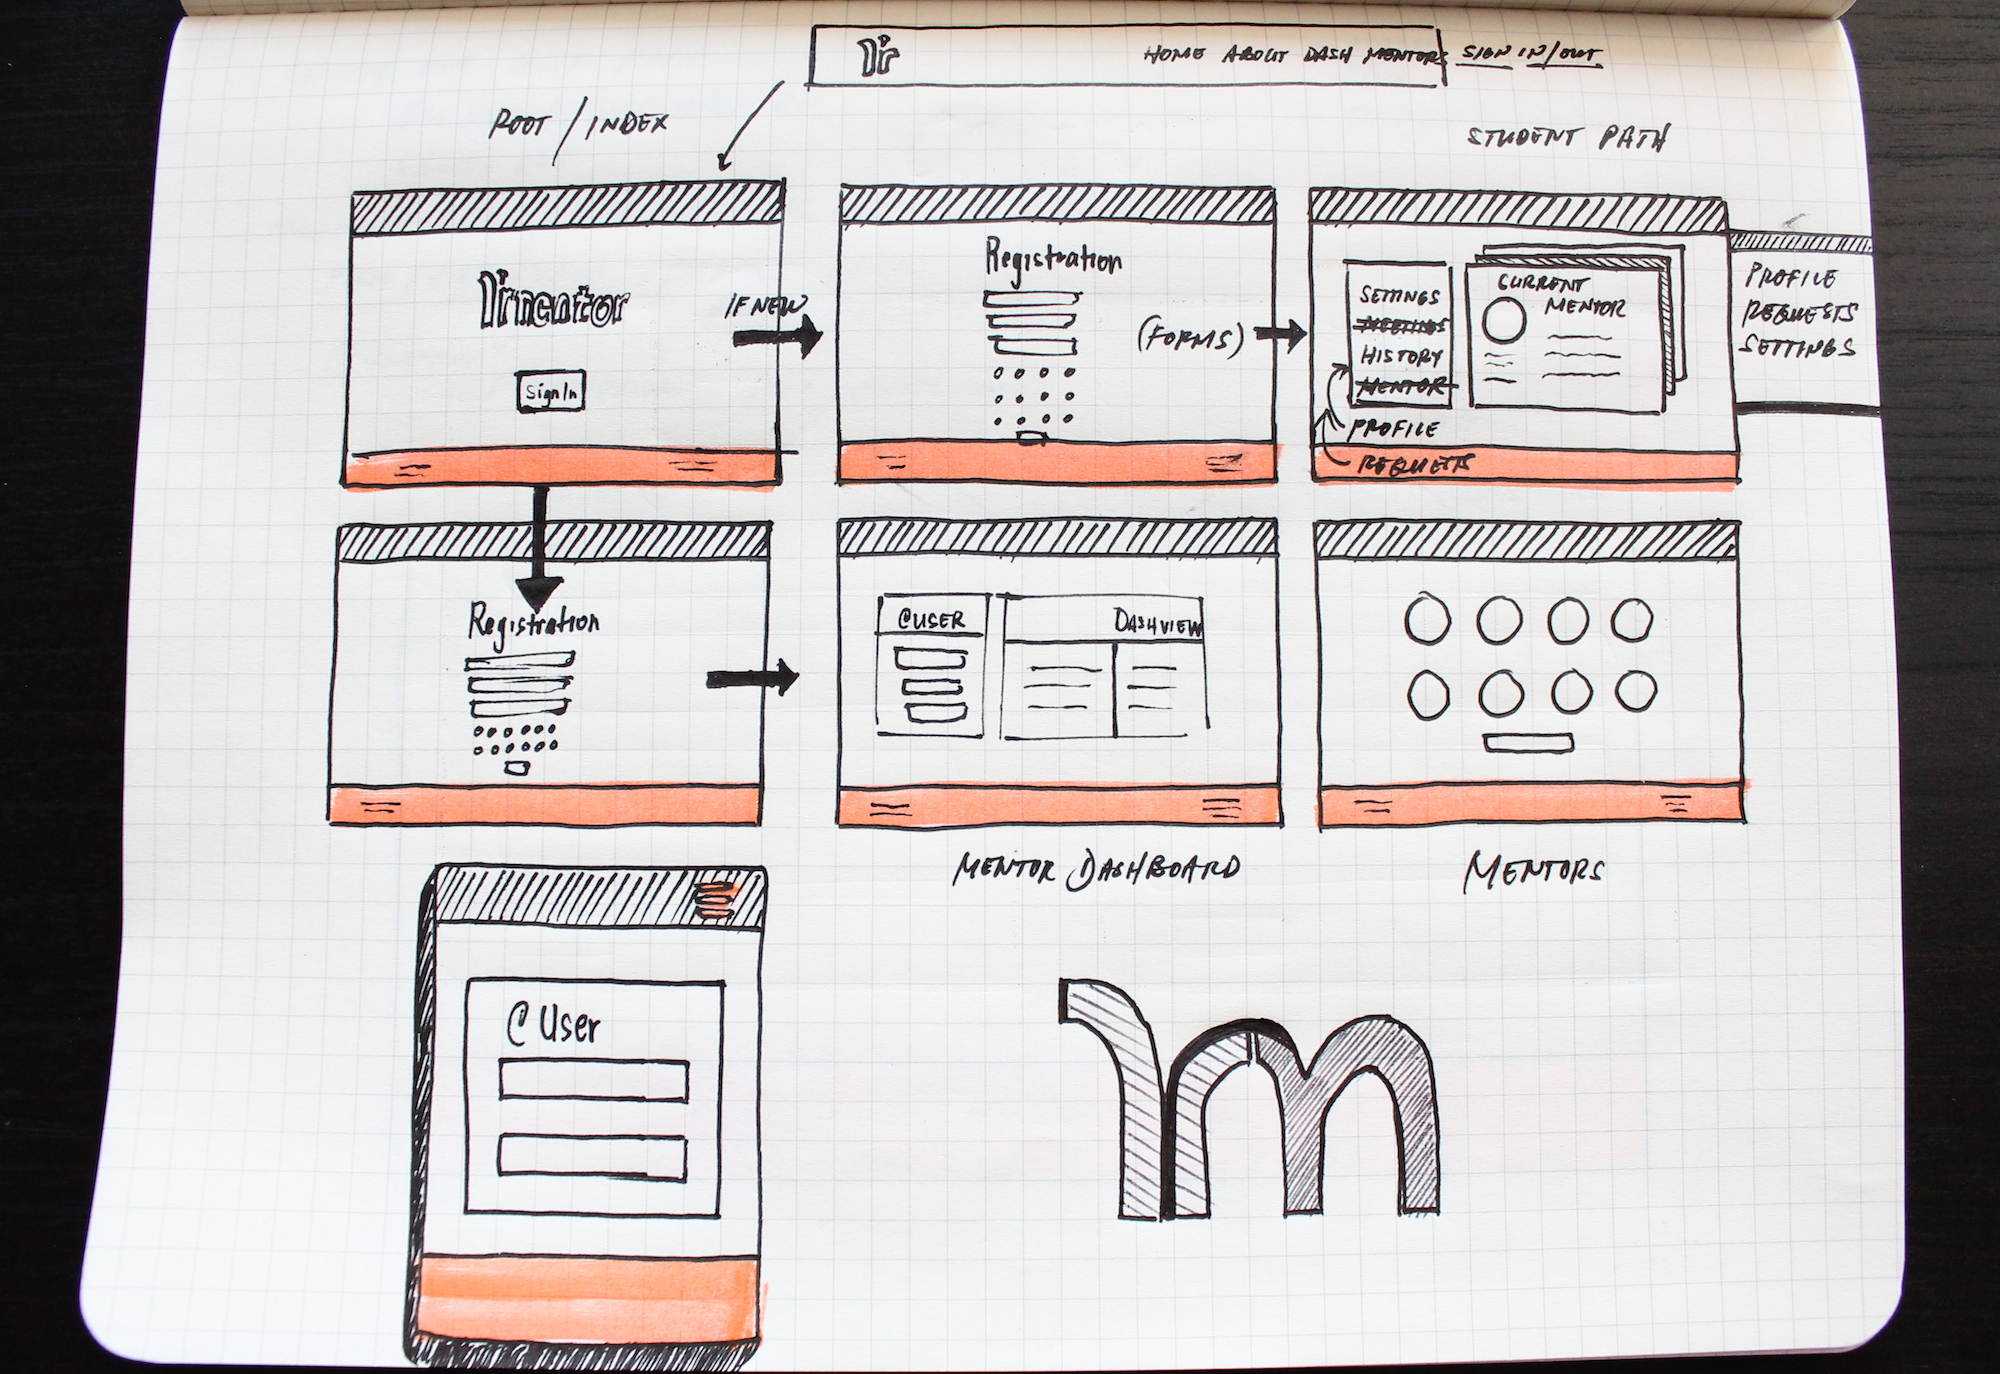 HOME ABOUT DASH MENTORS SIGN IN/OUT
ROOT / INDEX
STUDENT PATH
mentor
Sign In
IF NEW
Registration
(FORMS)
SETTINGS
MEETINGS
HISTORY
MENTOR
PROFILE
REQUESTS
CURRENT
MENTOR
PROFILE
REQUESTS
SETTINGS
Registration
@USER
DASHVIEW
MENTOR DASHBOARD
MENTORS
@ User
m